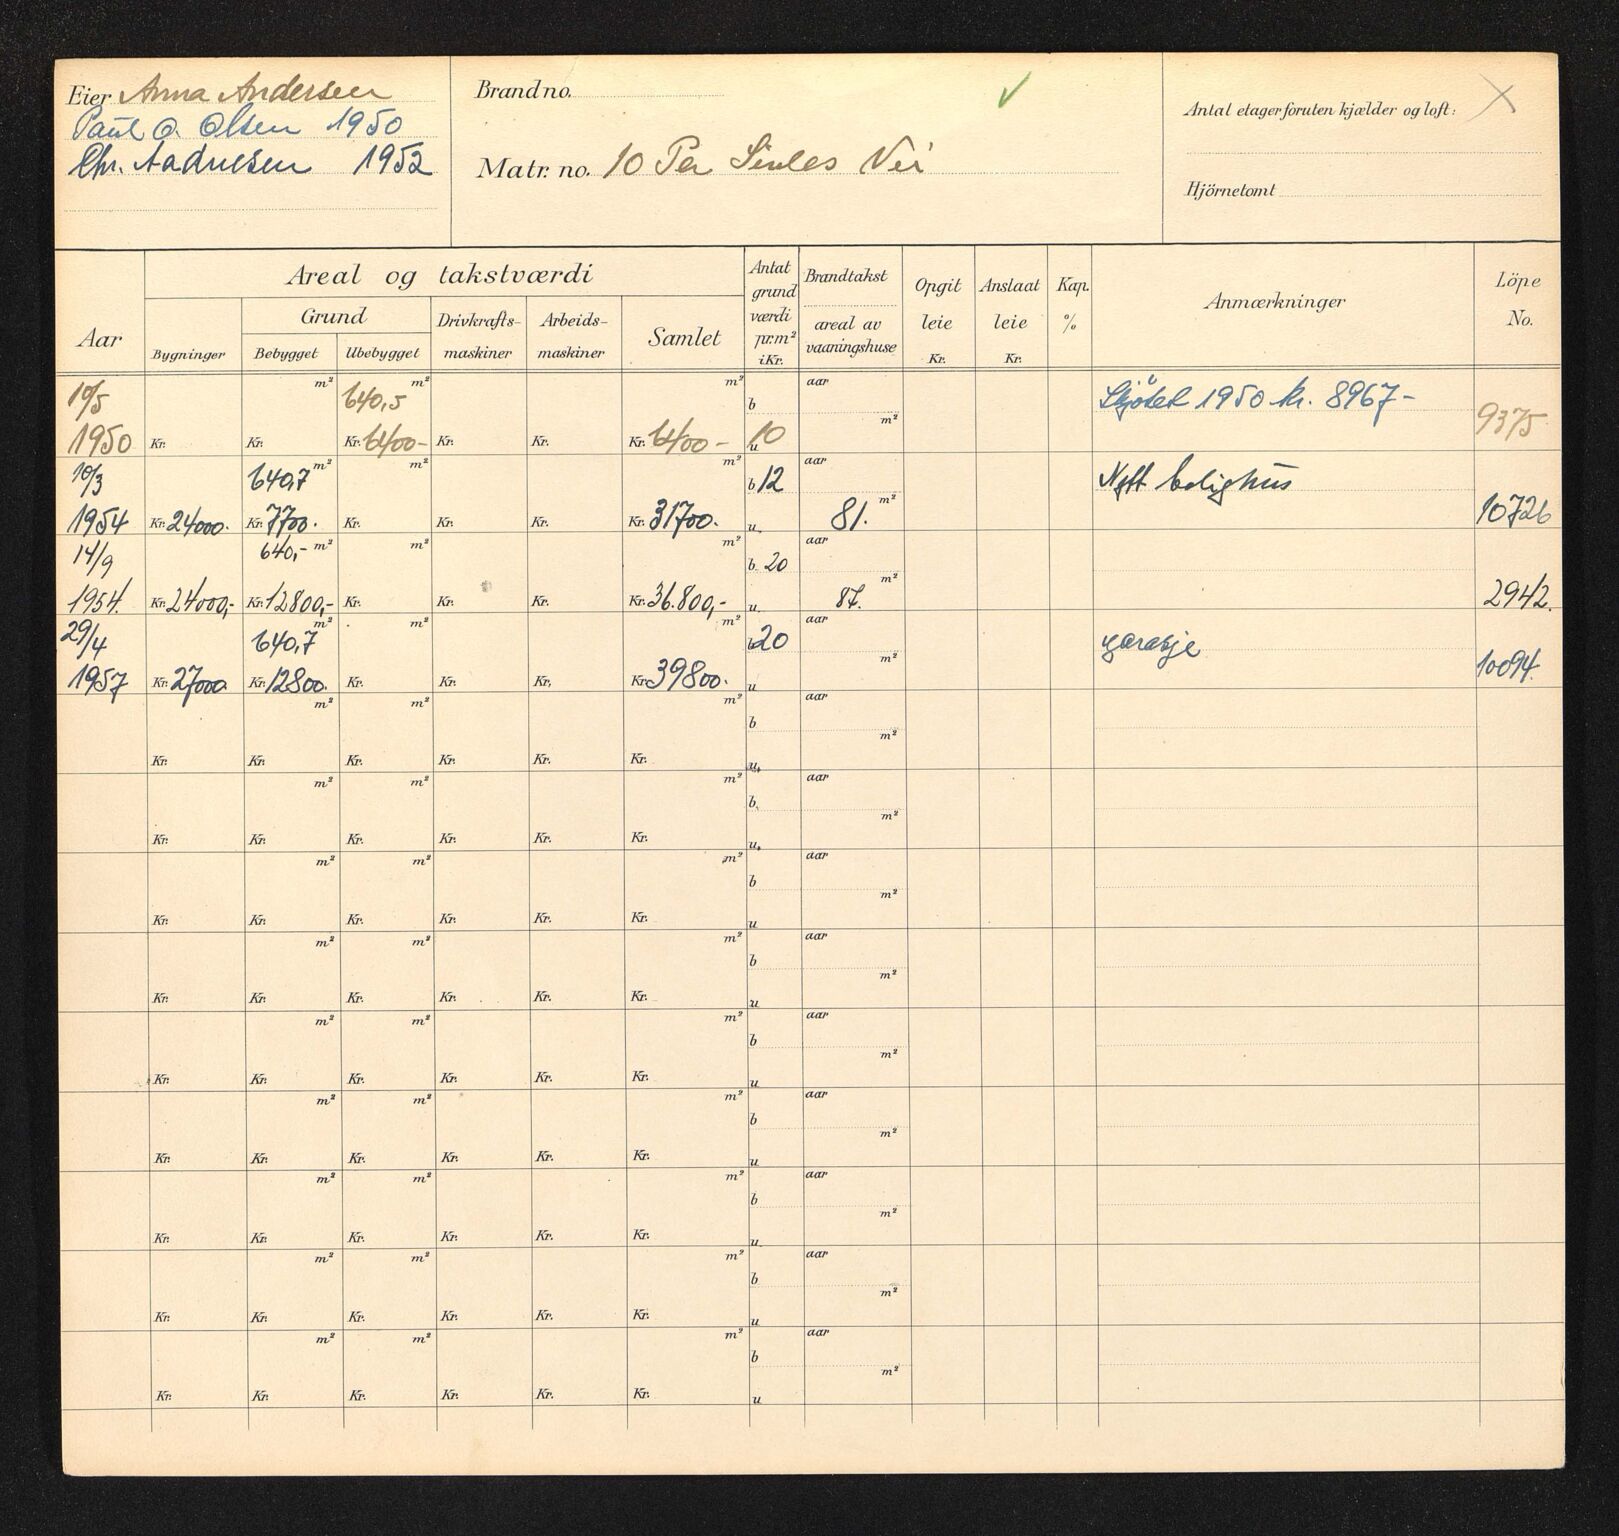 Eier Anna Andersen
Paul O. Olsen 1950
Chr. Aadnesen 1952
Brand no.
Matr. no. 10 Per Sivles Vei
Antal etager foruten kjælder og loft:
Hjörnetomt
Aar
Areal og takstværdi
Bygninger
Grund
Bebygget Ubebygget
Drivkrafts-
maskiner
Arbeids-
maskiner
Samlet
Antat
grund
værdi
pr. m²
i Kr.
Brandtakst
areal av
vaaningshuse
Opgit
leie
Kr.
Anslaat
leie
Kr.
Kap.
%
Anmærkninger
Löpe
No.
10/5 m² 640,5 m² m² b aar Skjötet 1950 kr. 8967-
1950 Kr. Kr. Kr. 6400- Kr. Kr. Kr. 6400- u 10 m² 9375
10/3 640,7 m² m² m² b 12 aar Nytt bolighus
1954 Kr. 24000. Kr. 7700. Kr. Kr. Kr. Kr. 31700. u 81. m² 10726
14/9 640,- m² m² m² b. 20 aar
1954. Kr. 24000,- Kr. 12800,- Kr. Kr. Kr. Kr. 36.800,- u. 87. m² 2942.
29/4 640,7 m² m² m² b 20 aar garasje
1957 Kr. 27000 Kr. 12800. Kr. Kr. Kr. Kr. 39800. u m² 10094.
m² m² m² b aar
Kr. Kr. Kr. Kr. Kr. Kr. u. m²
m² m² m² b. aar
Kr. Kr. Kr. Kr. Kr. Kr. u. m²
m² m² m² b aar
Kr. Kr. Kr. Kr. Kr. Kr. u m²
m² m² m² b aar
Kr. Kr. Kr. Kr. Kr. Kr. u m²
m² m² m² b aar
Kr. Kr. Kr. Kr. Kr. Kr. u m²
m² m² m² b aar
Kr. Kr. Kr. Kr. Kr. Kr. u m²
m² m² m² b aar
Kr. Kr. Kr. Kr. Kr. Kr. u m²
m² m² m² b aar
Kr. Kr. Kr. Kr. Kr. Kr. u m²
m² m² m² b aar
Kr. Kr. Kr. Kr. Kr. Kr. u m²